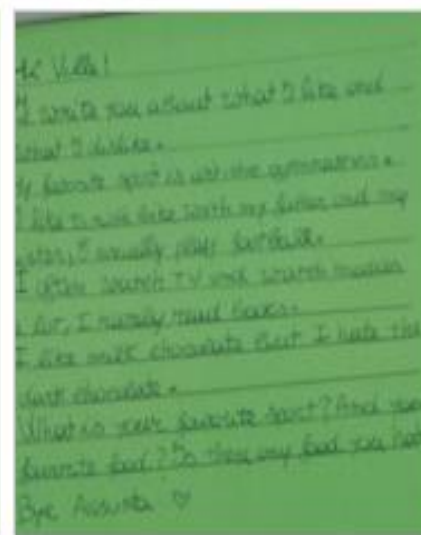 Hi Ville!
I write you about what I like and
what I dislike.
My favorite sport is the gymnastics.
I like to ride bike with my father and my
sister, I usually play football.
I often watch TV and watch movies
a lot, I rarely read books.
I like milk chocolate but I hate the
dark chocolate.
What is your favorite sport? And your
favorite food? Is they any food you hate
Bye Assunta ♡